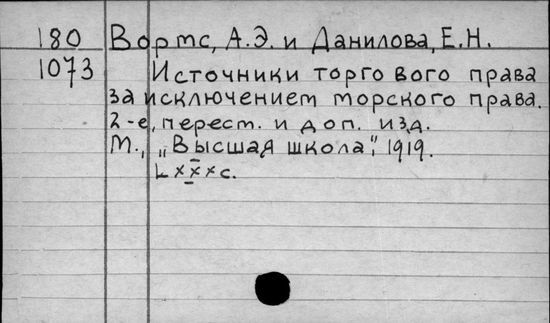 180 Вормс, А.Э. и Данилова, Е.Н.
1073 Источники торгового права
за исключением морского права.
2-е, перест. и доп. изд.
М., „Высшая школа", 1919.